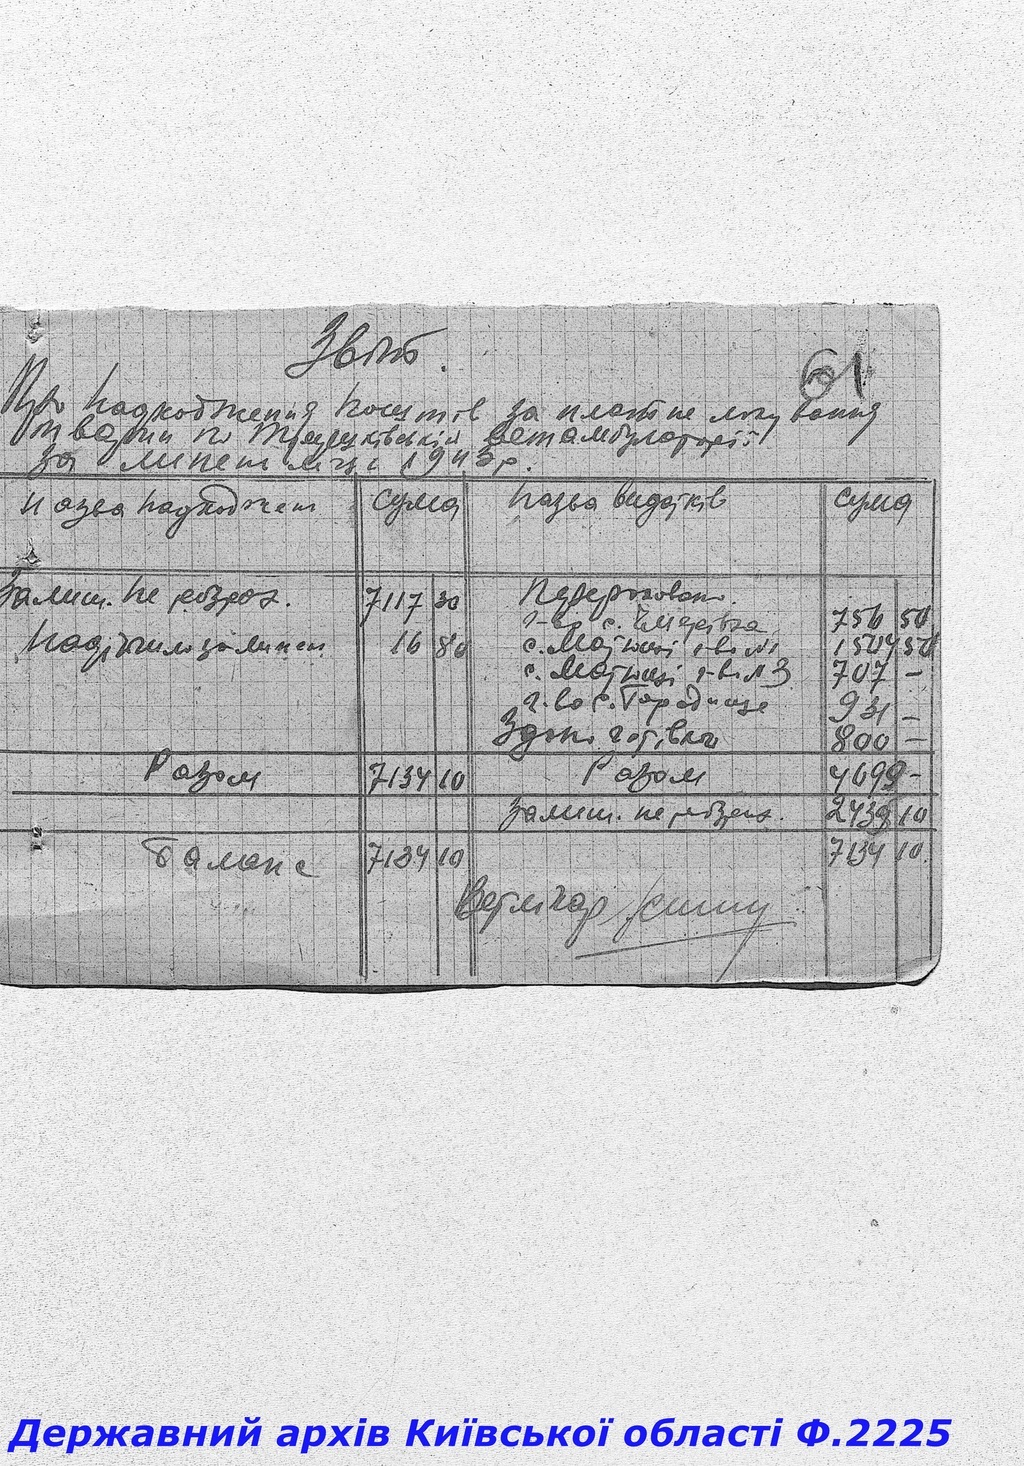 Звіт.
61
Про надходження коштів за платне лікування
тварин по ветамбулаторії
за липень м-ці 1943 р.
Назва надходжень сума Назва видатків сума
Залиш. не розрах. 7117 30 Перераховано
г-во с. 756 50
Надійшло за липень 16 80 с. Матюші г-во №1 1504 50
с. Матюші г-во №3 707 -
г-во с. Городище 931 -
Здано готівкою 800 -
Разом 7134 10 Разом 4699 -
Залиш. не розрах. 2435 10
Баланс 7134 10 7134 10
Ветлікар
Державний архів Київської області Ф.2225